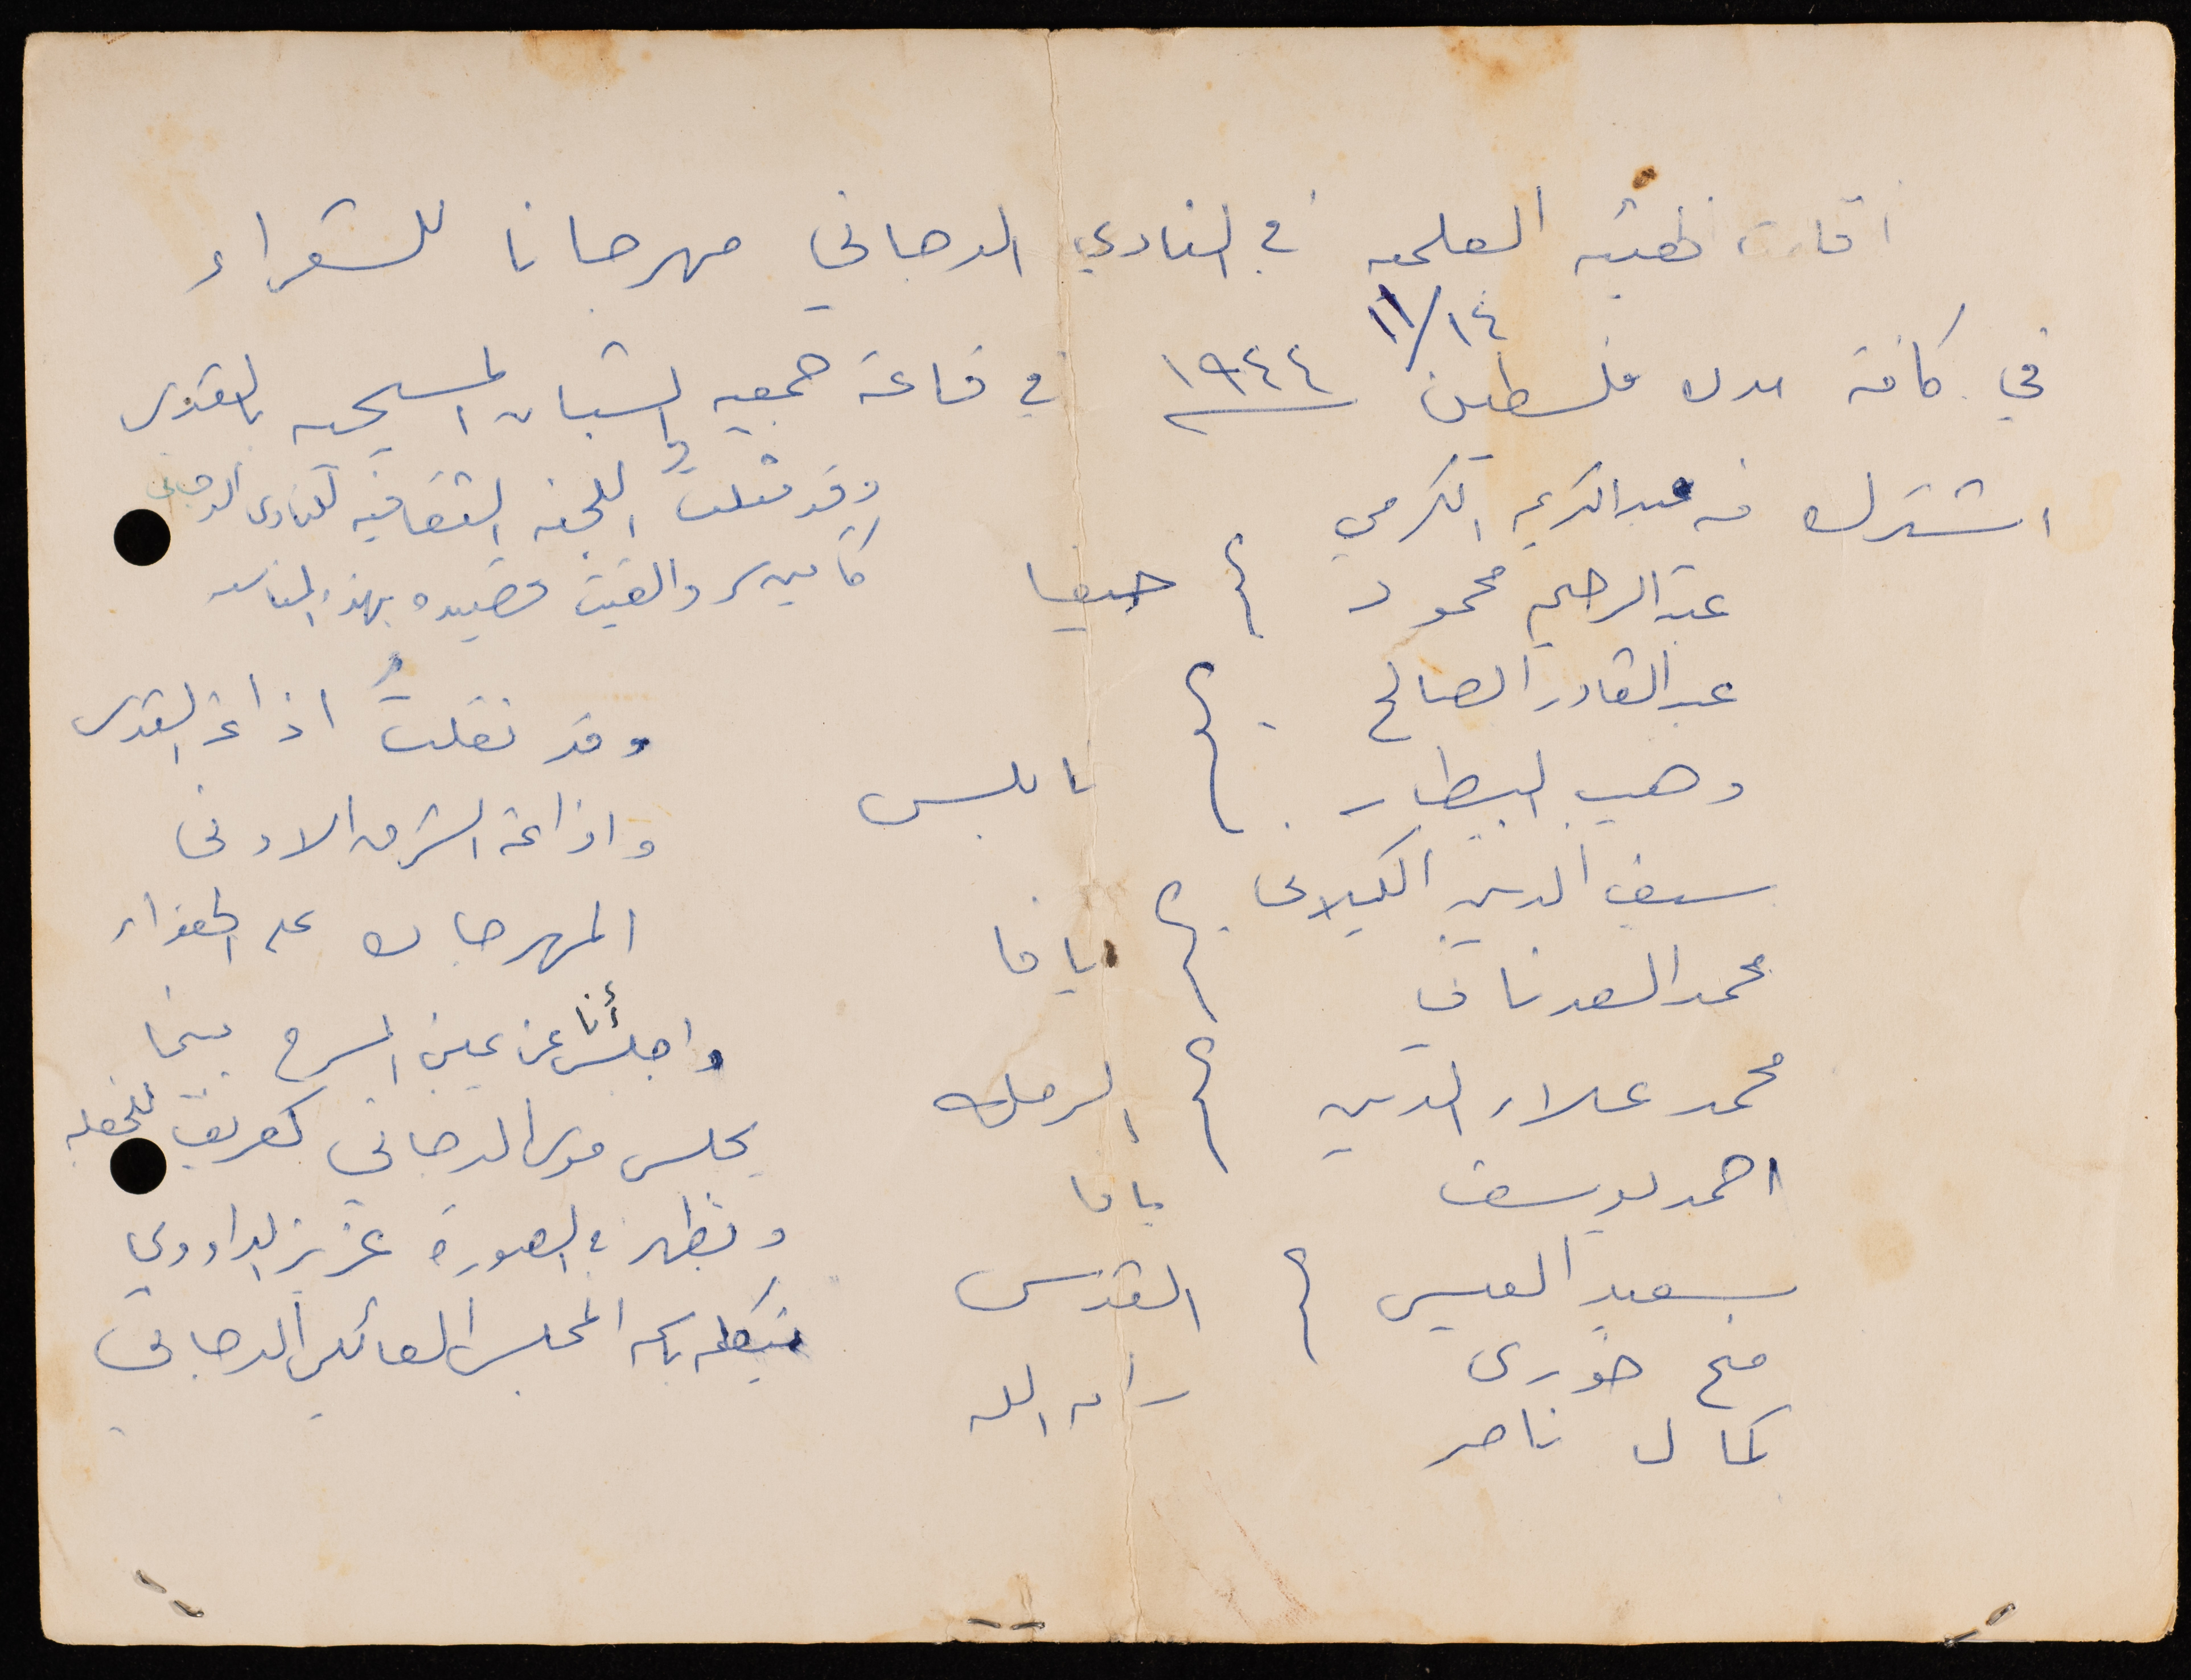 اقامت اللجنه العلميه في النادي الدجاني مهرجانا للشعراء
١٤/١١
في كافة مدن فلسطين ١٩٤٤ في قاعة جمعيه الشبان المسيحيه بالقدس
اشترك فيه عبدالكريم الكرمي
عبدالرحيم محمود } حيفا
عبدالقادر الصالح
وهيب البيطار } نابلس
سيف الدين الكيلاني
محمد العدناني } يافا
محمد علاء الدين } الرمله
احمد يوسف يافا
سعيد العيسى } القدس
منح خوري
رام الله
كمال ناصر
وقد مثلتُ اللجنه الثقافيه للنادي الدجاني
والقيت قصيده بهذه المناسبه
وقد نقلت اذاعة القدس
واذاعة الشرق الادنى
المهرجان على الهواء
واجلس أنا عن يمين المسرح بينما
يجلس موسى الدجاني كعريف للحفله
ويظهر في الصورة عزيز الداودي
يتكلم باسم المجلس العائلي الدجاني